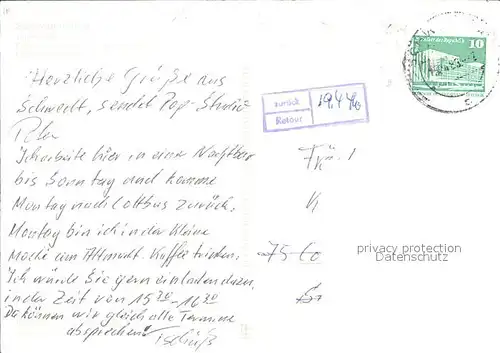 Herzliche Grüße aus
Schwedt, sendet Pop-Studio
Ich arbeite hier in einer Nachtbar
bis Sonntag und komme
Montag nach Cottbus zurück.
Montag bin ich in der Kleine
am Altmarkt Kaffee trinken.
Ich würde Sie gern einladen dazu,
in der Zeit von 15 30 - 16 30
Da können wir gleich alle Termine
absprechen! Tschüß
zurück
Retour
10
75 Co
privacy protection
Datenschutz